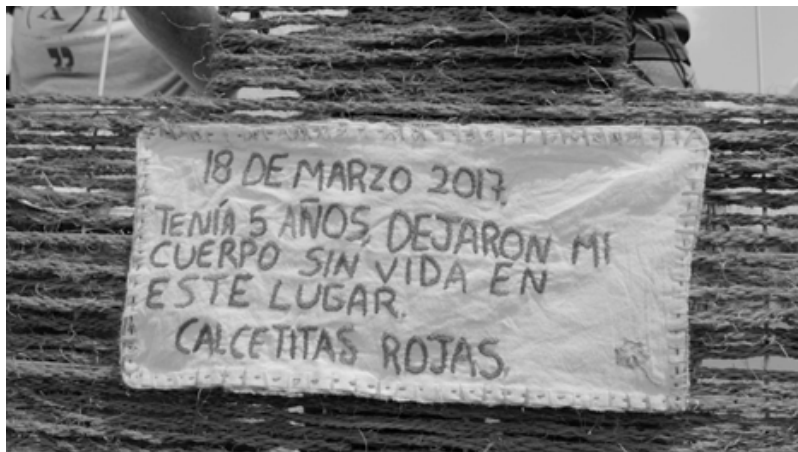 18 DE MARZO 2017.
TENÍA 5 AÑOS, DEJARON MI
CUERPO SIN VIDA EN
ESTE LUGAR.
CALCETITAS ROJAS.